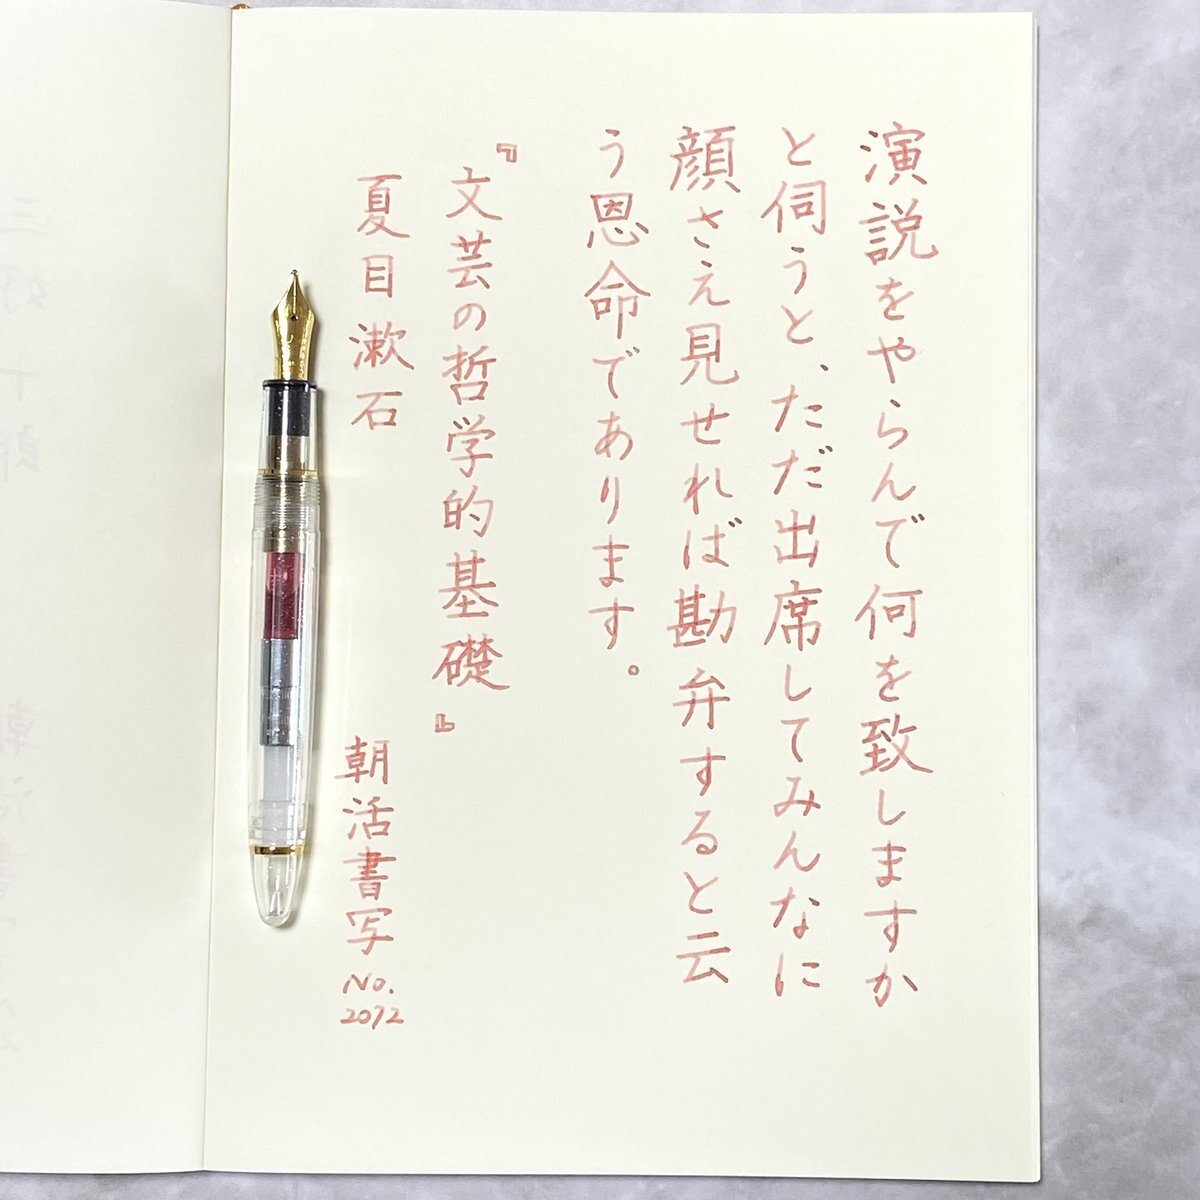 演説をやらんで何を致しますか
と伺うと、ただ出席してみんなに
顔さえ見せれば勘弁すると云
う恩命であります。
『文芸の哲学的基礎』
夏目漱石
朝活書写
No.
2092